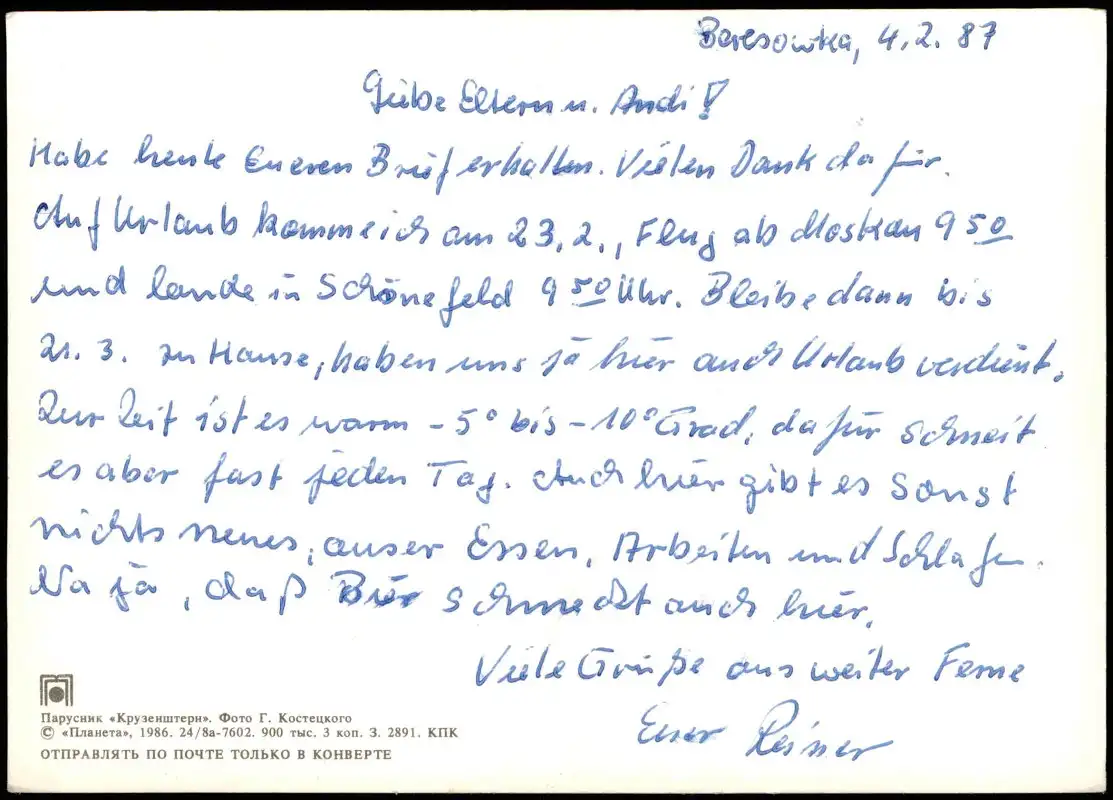 Beresowka, 4.2.87
Liebe Eltern u. Andi!
Habe heute Eueren Brief erhalten. Vielen Dank dafür.
Auf Urlaub komme ich am 23.2., Flug ab Moskau 9 50
und lande in Schönefeld 9 50 Uhr. Bleibe dann bis
21. 3. zu Hause, haben uns ja hier auch Urlaub verdient.
Zur Zeit ist es warm -5° bis -10° Grad, dafür schneit
es aber fast jeden Tag. Auch hier gibt es sonst
nichts neues, auser Essen, Arbeiten und Schlafen.
Na ja, daß Bier schmeckt auch hier.
Viele Grüße aus weiter Ferne
Euer Reiner
Парусник «Крузенштерн». Фото Г. Костецкого
© «Планета», 1986. 24/8а-7602. 900 тыс. 3 коп. З. 2891. КПК
ОТПРАВЛЯТЬ ПО ПОЧТЕ ТОЛЬКО В КОНВЕРТЕ